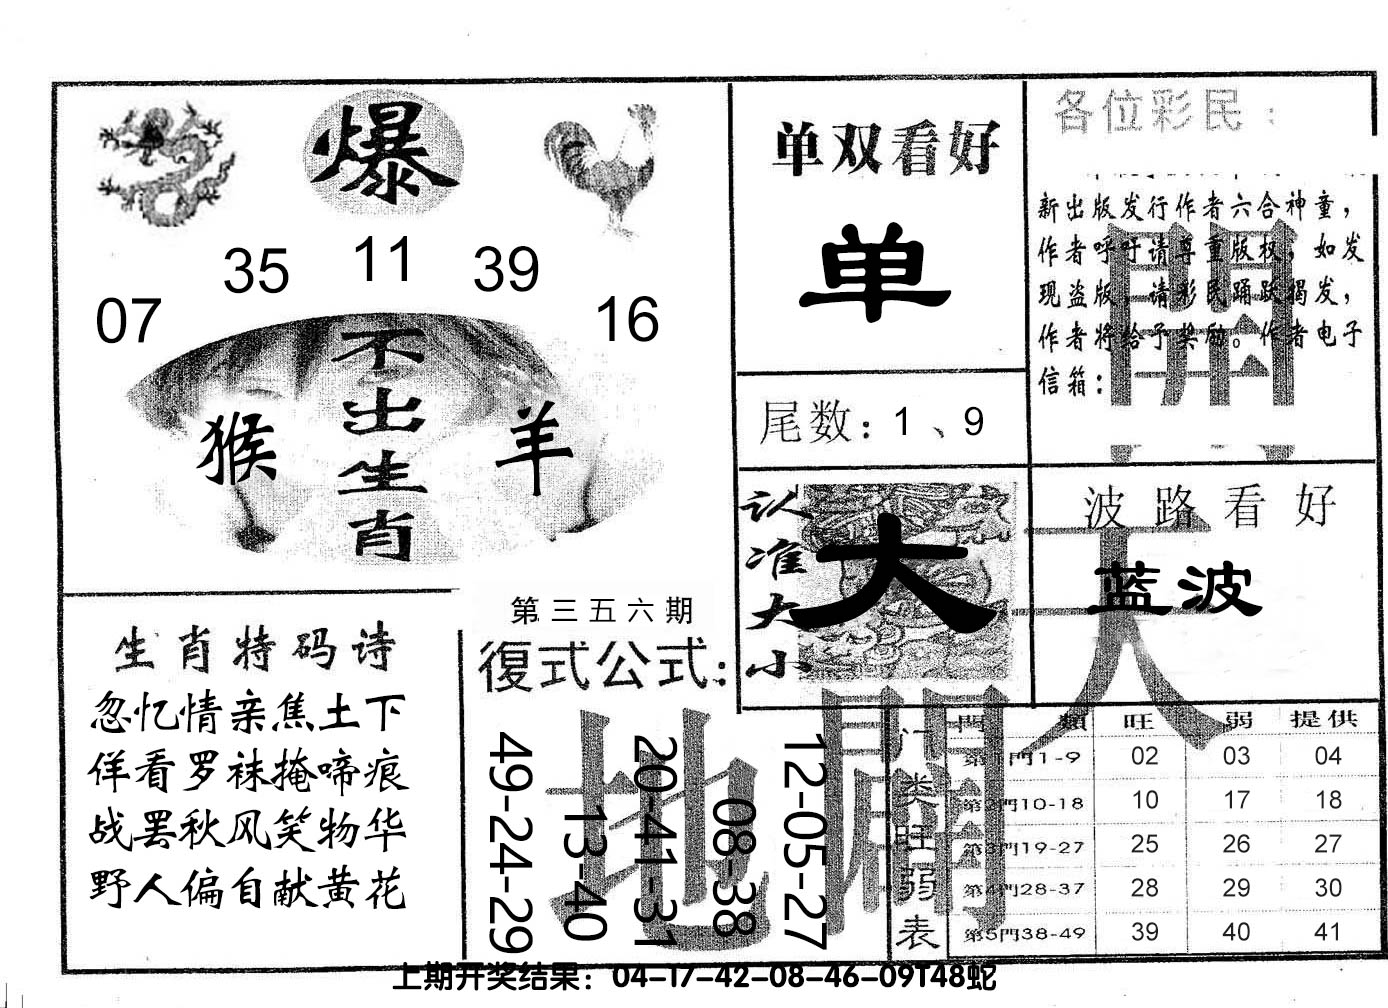 爆
07 35 11 39 16
不出生肖
猴 羊
生肖特码诗
忽忆情亲焦土下
佯看罗袜掩啼痕
战罢秋风笑物华
野人偏自献黄花
第三五六期
復式公式:
49-24-29
13-40
20-41-31
08-38
12-05-27
单双看好
单
尾数: 1、9
认准大小
大
各位彩民:
新出版发行作者六合神童,
作者呼吁请尊重版权,如发
现盗版,请彩民踊跃揭发,
作者将给予奖励。作者电子
信箱:
波路看好
蓝波
天
地
門类旺弱表
門類 旺 弱 提供
第1門1-9 02 03 04
第2門10-18 10 17 18
第3門19-27 25 26 27
第4門28-37 28 29 30
第5門38-49 39 40 41
上期开奖结果：04-17-42-08-46-09T48蛇